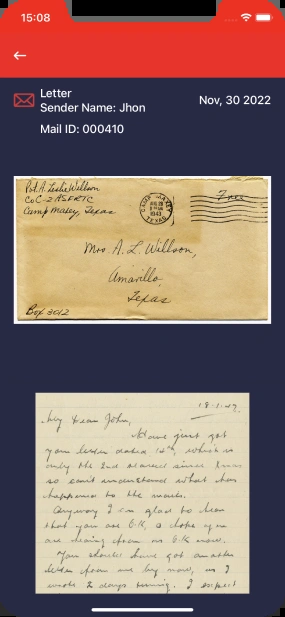 15:08
Letter
Sender Name: Jhon
Nov, 30 2022
Mail ID: 000410
Pvt. A. Leslie Willson
Co C-2 ASFRTC
Camp Maxey, Texas
CAMP MAXEY
1943
TEXAS
Free
Mrs. A. L. Willson,
Amarillo,
Texas
Box 3012
My Dear John,
Have just got
your letter dated 12th, which is
only the 2nd received since Xmas
so can't understand what has
happened to the mails.
Anyway I am glad to hear
that you are O.K, & hope you
are hearing from us O.K now.
You should have got another
letter from me by now, as I
wrote 2 days running. I expect